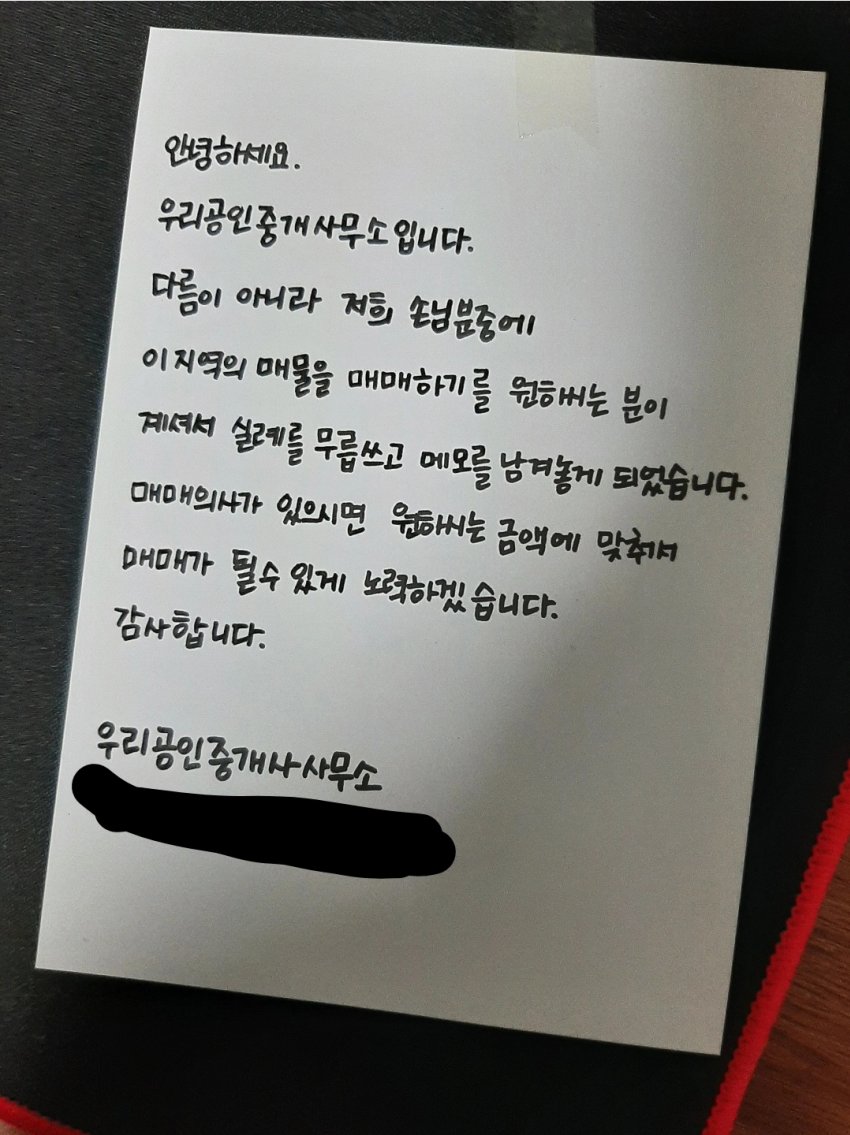 안녕하세요.
우리공인중개사무소입니다.
다름이 아니라 저희 손님분중에
이지역의 매물을 매매하기를 원하시는 분이
계셔서 실례를 무릅쓰고 메모를 남겨놓게 되었습니다.
매매의사가 있으시면 원하시는 금액에 맞춰서
매매가 될수 있게 노력하겠습니다.
감사합니다.
우리공인중개사사무소